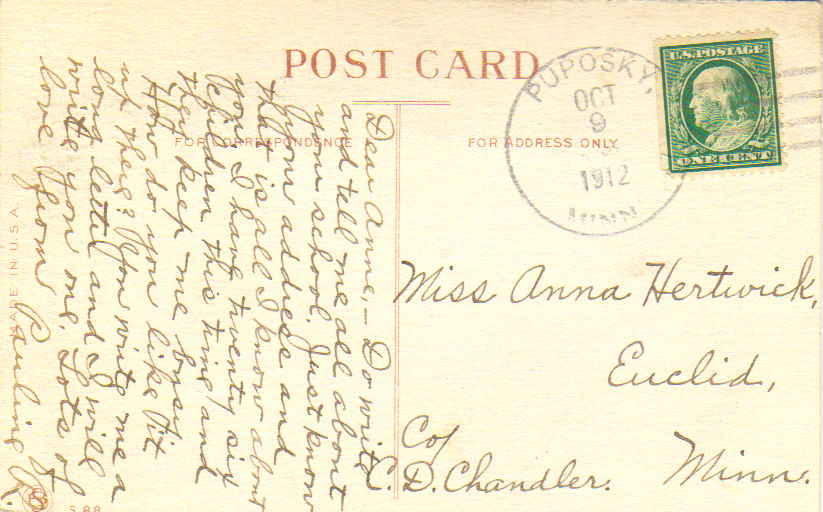 POST CARD
FOR CORRESPONDENCE
FOR ADDRESS ONLY
PUPOSKY,
OCT
9
1912
MINN
U.S. POSTAGE
ONE CENT
Dear Anne,— Do write
and tell me all about
your school. Just know
your address and
that is all I know about
you. I have twenty six
children this time and
they keep me busy
How do you like it
up there? You write me a
long letter and I will
write you one. Lots of
love from Pauline R.
Miss Anna Hertwick,
Euclid,
Minn.
Co/
C. D. Chandler.
MADE IN U.S.A.
S 88